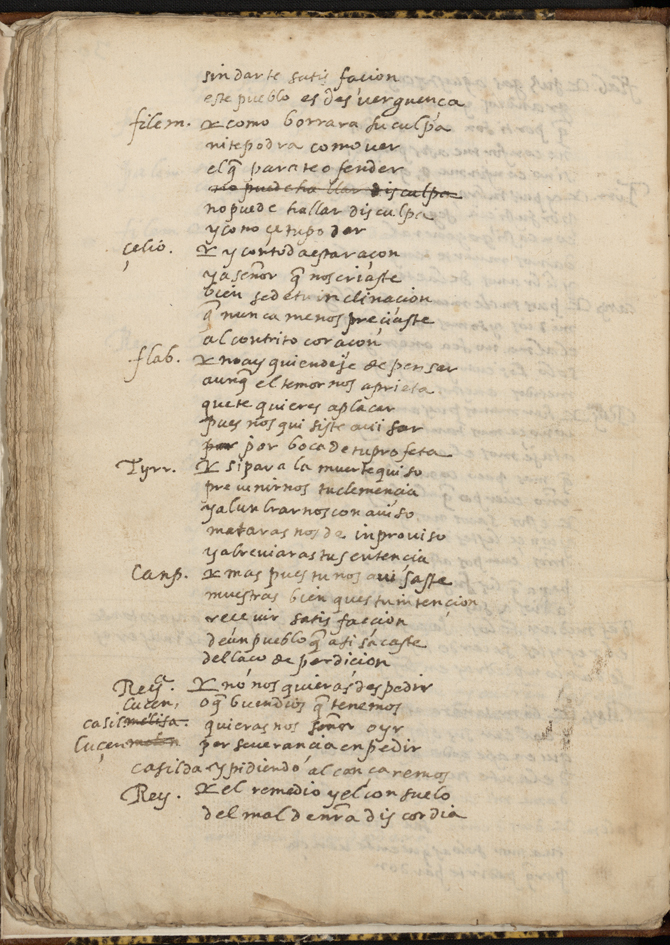 sin darte satis facion
este pueblo es des verguença
filem. Y como borrara su culpa
ni te podra como ver
el q̃ para te ofender
no puede ha llar disculpa
no puede hallar disculpa
y cono ce tu poder
çelio. Y y con toda esta raçon
ya señor q̃ nos criaste
bien se de tu in clinacion
q̃ nunca menos preciaste
al contrito coraçon
flab. Y no ay quien deje de pensar
aunq̃ el temor nos aprieta
que te quieres aplacar
pues nos qui siste avi sar
por por boca de tu profeta
Tyrr. Y si para la muerte quiso
pre venirnos tu clemencia
y alunbrarnos con aviso
mataras nos de inproviso
y abreviaras tu sentencia
Canp. Y mas pues tu nos avi saste
muestras bien ques tu intencion
recevir satis facion
de un pueblo q̃ a ti sacaste
del laço de perdicion
Reyª. Y nó nos quieras despedir
Lucen, o q̃ buen dios q̃ tenemos
casil quieras nos señor oyr
Luçen per severancia en pedir
casilda y pidiendo alcançaremos
Rey. Y el remedio y el consuelo
del mal de nr̃a dis cordia